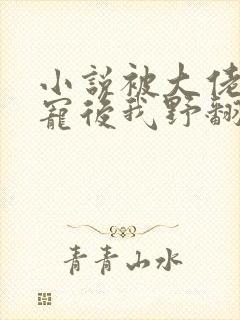 小說被大佬
寵後我野翻
青青山水